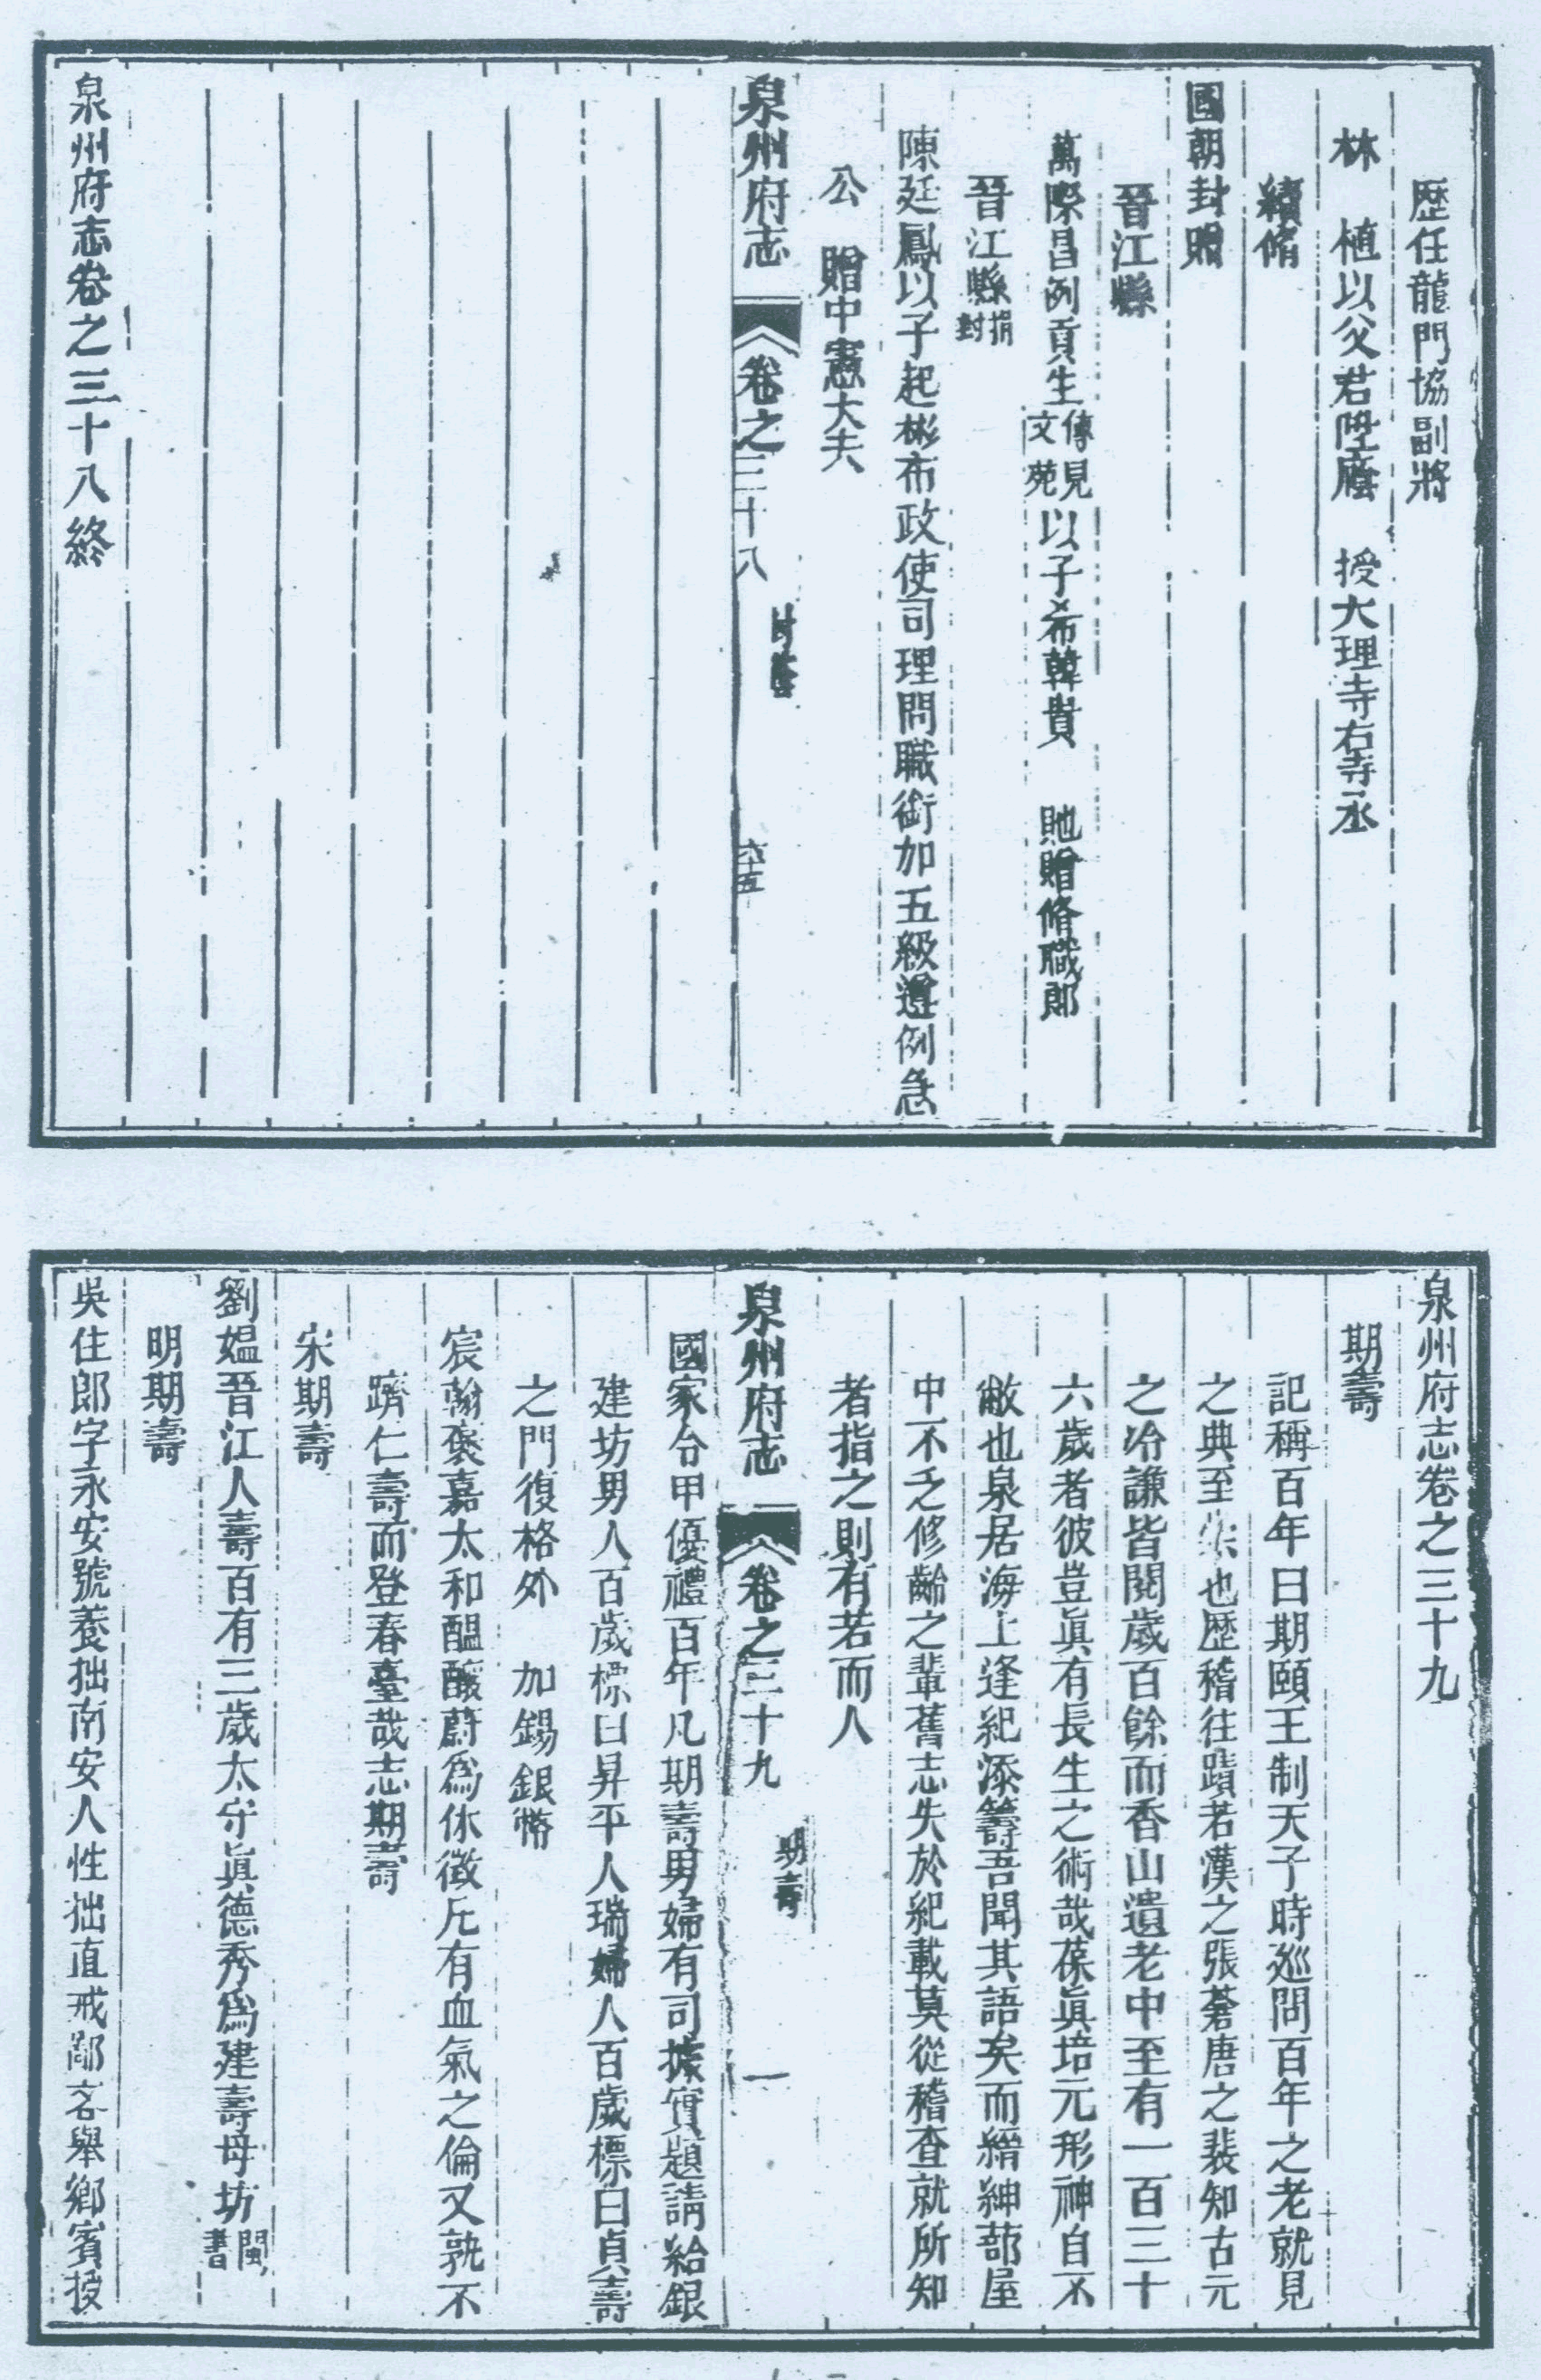 歴任龍門協副將
林　植以父君陞廕　授大理寺右寺丞
續脩
國朝封贈
晉江縣
萬際昌例貢生傳見文苑以子希韓貴　貤贈脩職郎
晉江縣捐封
陳廷鳳以子起彬布政使司理問職銜加五級遵例急
公　贈中憲大夫
泉州府志　卷之三十八　封廕　六十五
泉州府志卷之三十八終
泉州府志卷之三十九
期壽
記稱百年曰期頤王制天子時廵問百年之老就見
之典至也歴稽往蹟若漢之張蒼唐之裴知古元
之冷謙皆閱歲百餘而香山遺老中至有一百三十
六歲者彼豈眞有長生之術哉葆眞培元形神自不
敝也泉居海上逢紀添籌吾聞其語矣而縉紳蔀屋
中不乏修齡之輩舊志失於紀載莫從稽查就所知
者指之則有若而人
泉州府志　卷之三十九　期壽　一
國家令甲優禮百年凡期壽男婦有司據實題請給銀
建坊男人百歲標曰昇平人瑞婦人百歲標曰貞壽
之門復格外　加錫銀幣
宸翰褒嘉太和醞釀蔚爲休徵凡有血氣之倫又孰不
躋仁壽而登春臺哉志期壽
宋期壽
劉媼晉江人壽百有三歲太守眞德秀爲建壽母坊閩書
明期壽
吳住郎字永安號養拙南安人性拙直戒鄙吝舉鄉賓授